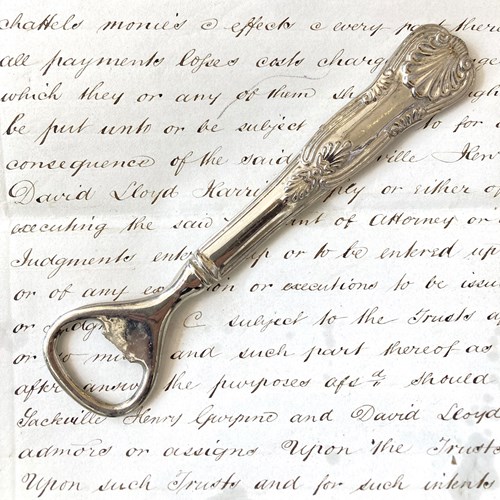 chattels monies & effects & every part there
all payments losses costs charg
which they or any of them sh
be put unto or be subject to for o
consequence of the said ville Hen
David Lloyd Harry ply or either of
executing the said nt of Attorney or
Judgments ente up or to be entered up
or of any on or executions to be issu
or subject to the Trusts a
or and such part thereof as
after answ the purposes afsd should
Sackville Henry and David Lloyd
admors or assigns Upon the Trusts
Upon such Trusts and for such intents